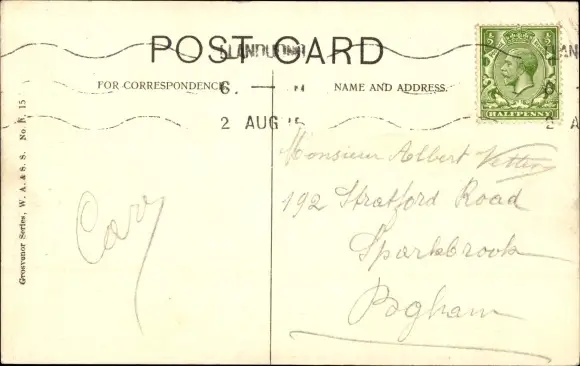 POST CARD
LLANDUDNO
FOR CORRESPONDENCE
6. —
NAME AND ADDRESS.
2 AUG 15
½
½
HALFPENNY
Grosvenor Series, W. A. & S. S. No. B. 15
Monsieur Albert
192 Stratford Road
Sparkbrook
Bgham